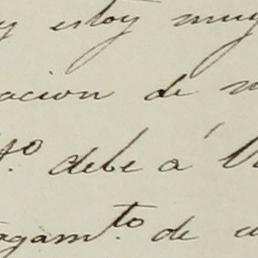 y estoy muy
acion de
to. debe á
agamto. de